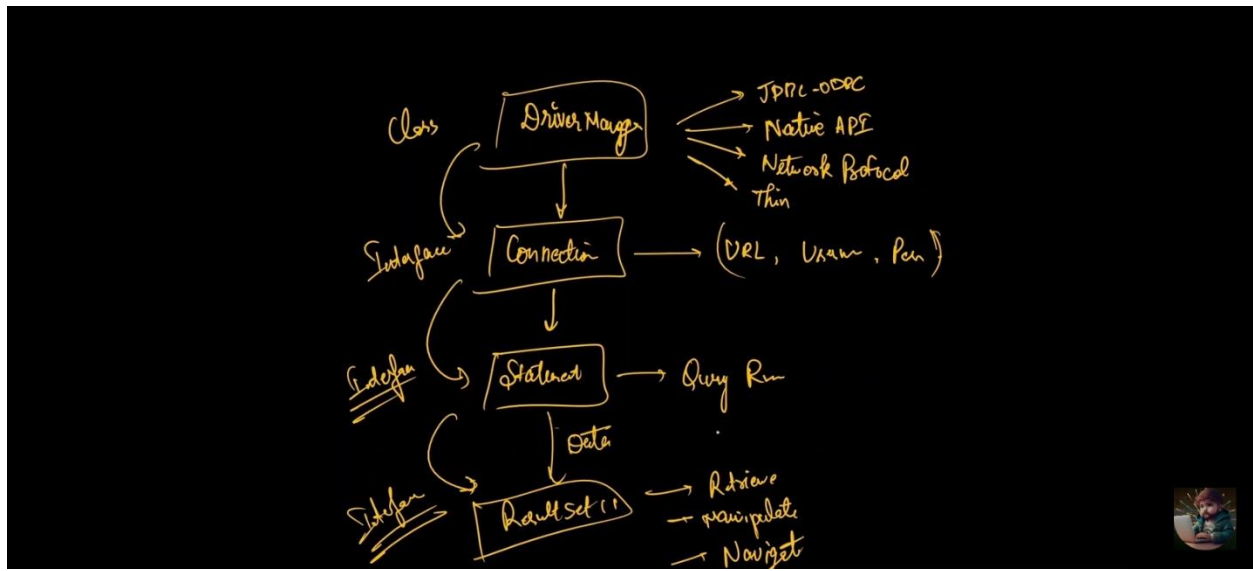 Class
DriverManager
JDBC-ODBC
Native API
Network Protocol
Thin
Interface
Connection
(URL, Usernam, Pass)
Interface
Statement
Query Run
Data
Interface
ResultSet()
Retrieve
Manipulate
Naviget